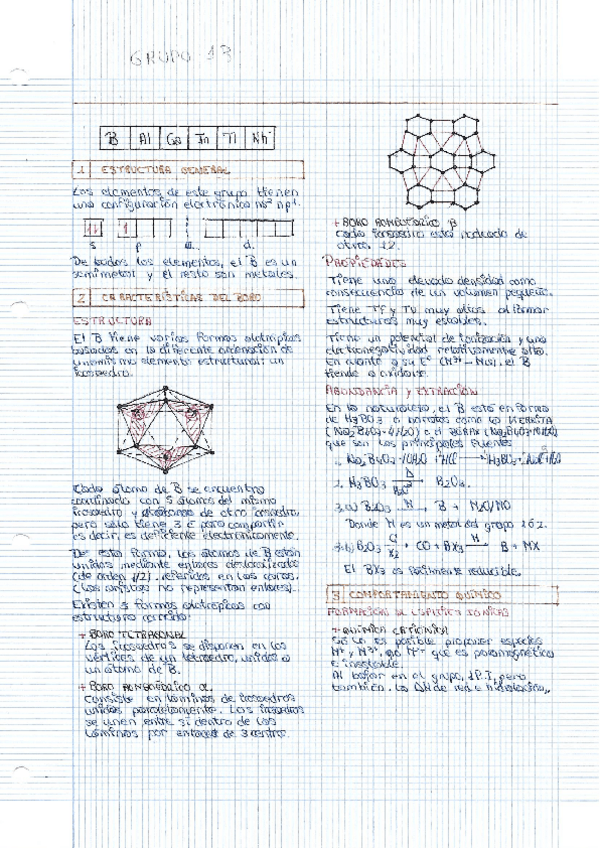 GRUPO 13
B Al Ga In Tl Nh
1 ESTRUCTURA GENERAL
Los elementos de este grupo tienen
una configuración electrónica ns² np¹.
s p d
De todos los elementos, el B es un
semimetal y el resto son metales.
2 CARACTERÍSTICAS DEL BORO
ESTRUCTURA
El B tiene varias formas alotrópicas
basadas en la diferente ordenación de
un mismo elemento estructural: un
icosaedro.
Cada átomo de B se encuentra
coordinado con 5 átomos del mismo
icosaedro y otro de otro icosaedro,
pero solo tiene 3 e⁻ para compartir
es decir, es deficiente electrónicamente.
De esta forma, los átomos de B están
unidos mediante enlaces deslocalizados
(de orden 1/2), referidos en las caras.
(Las aristas no representan enlaces).
Existen 3 formas alotrópicas con
estructura conocida:
+ BORO TETRAGONAL
Los icosaedros se disponen en los
vértices de un tetraedro, unidos a
un átomo de B.
+ BORO ROMBOÉDRICO α
Consiste en láminas de icosaedros
unidas paralelamente. Los icosaedros
se unen entre sí dentro de las
láminas por enlaces de 3 centros.
+ BORO ROMBOÉDRICO β
Cada icosaedro está rodeado de
otros 12.
PROPIEDADES
Tiene una elevada densidad como
consecuencia de un volumen pequeño.
Tiene TF y TV muy altos al formar
estructuras muy estables.
Tiene un potencial de ionización y una
electronegatividad relativamente alta.
En cuanto a su E° (M³⁺ - M(s)), el B
tiende a oxidarse.
ABUNDANCIA Y EXTRACCIÓN
En la naturaleza, el B está en forma
de H₃BO₃ o boratos como la KERNITA
(Na₂B₄O₇·4H₂O) o el BÓRAX (Na₂B₄O₇·10H₂O)
que son las principales fuentes
1. Na₂B₄O₇·10H₂O + HCl → H₃BO₃
2. H₃BO₃ → Δ B₂O₃
3.a) B₂O₃ → M B + M₂O/MO
Donde M es un metal del grupo 1 o 2.
3.b) B₂O₃ → C X₂ CO + BX₃ → H B + HX
El BX₃ es fácilmente reducible.
3 COMPORTAMIENTO QUÍMICO
FORMACIÓN DE ESPECIES IÓNICAS
+ QUÍMICA CATIÓNICA
Solo es posible proponer especies
M⁺ y M³⁺, que M²⁺ que es paramagnética
e inestable.
Al bajar en el grupo, ↓P.I, pero
también la ΔH de red e hidratación,